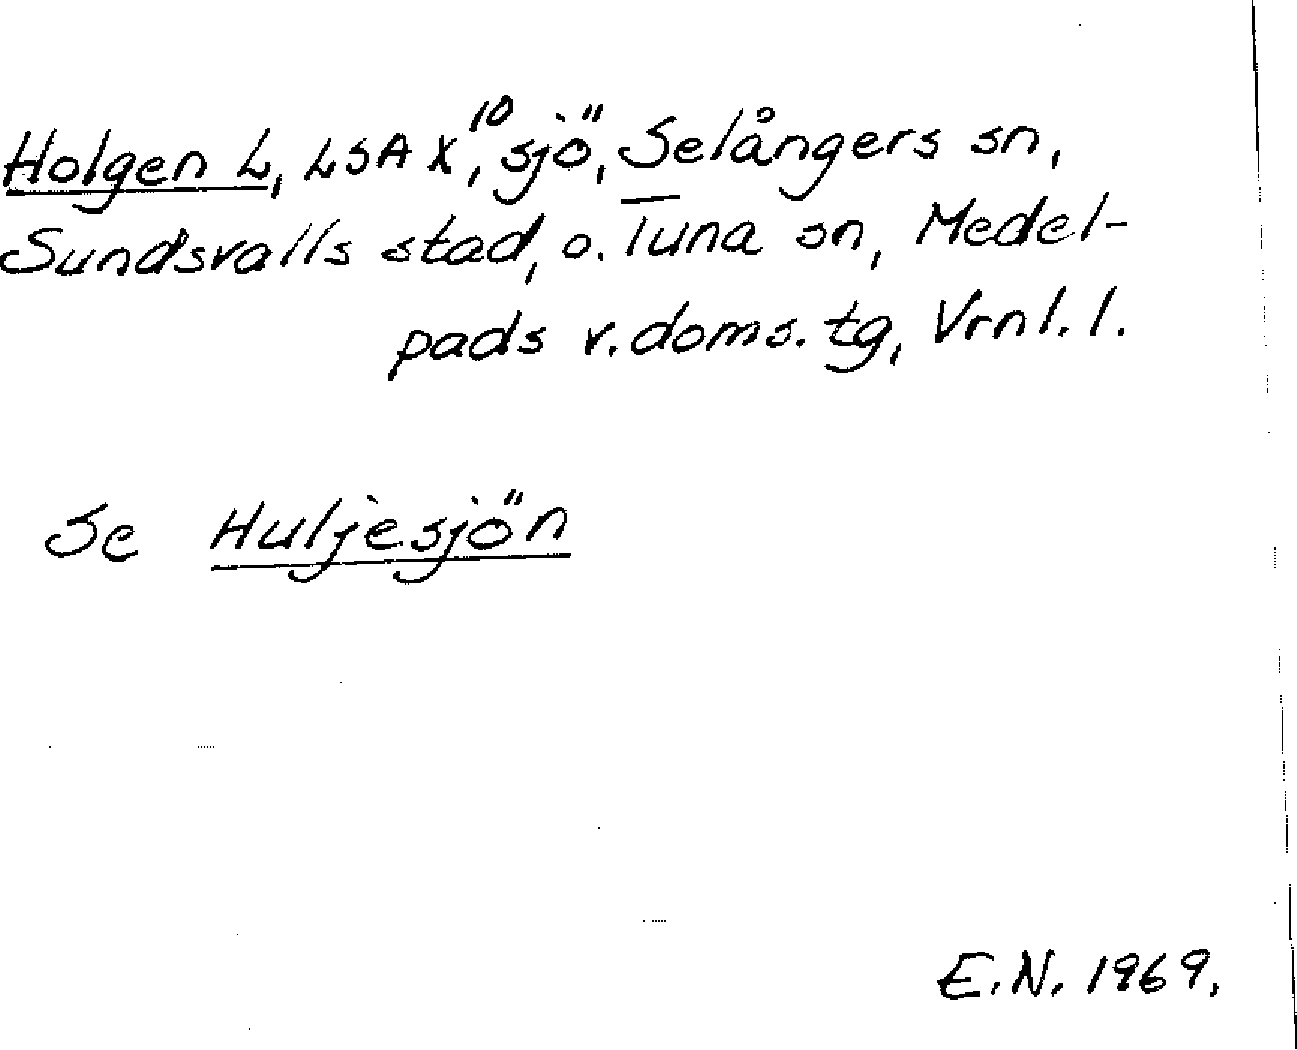 Holgen L, LSA X¹⁰, sjö, Selångers sn,
Sundsvalls stad, o. Tuna sn, Medel-
pads v. doms. tg, Vrnl. l.
Se Huljesjön
E.N. 1969.